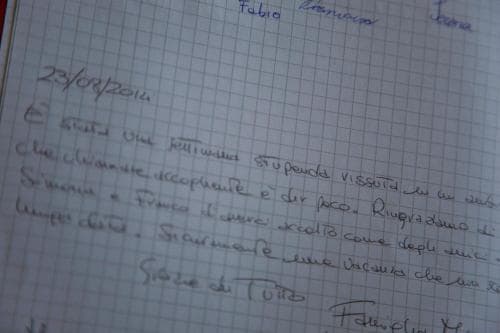 Fabio
23/08/2014
È stata una settimana stupenda vissuta in un
che chiamare accogliente è dir poco. Ringraziamo
Simona e Franco di averci accolto come degli amici
lunga data. Sicuramente una vacanza che
Grazie di Tutto